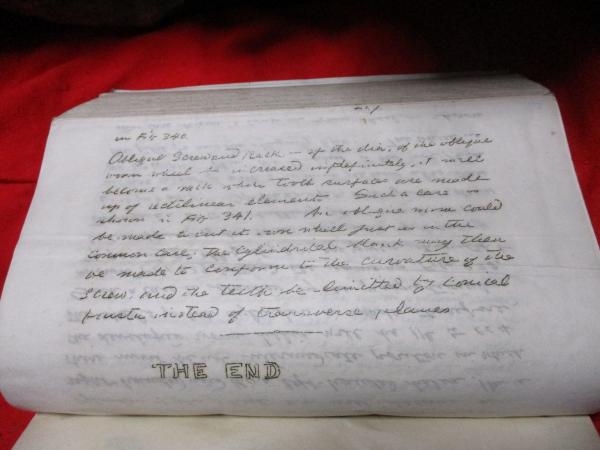 in Fig 340.
Oblique Screw and Rack — if the dia. of the oblique
worm wheel be increased indefinitely, it will
become a rack whose tooth surfaces are made
up of rectilinear elements. Such a case is
shown in Fig 341. An oblique worm could
be made to cut it worm wheel just as in the
common case; the Cylindrical blank may then
be made to conform to the curvature of the
Screw, and the teeth be limitted by Conical
frusta instead of transverse planes
THE END